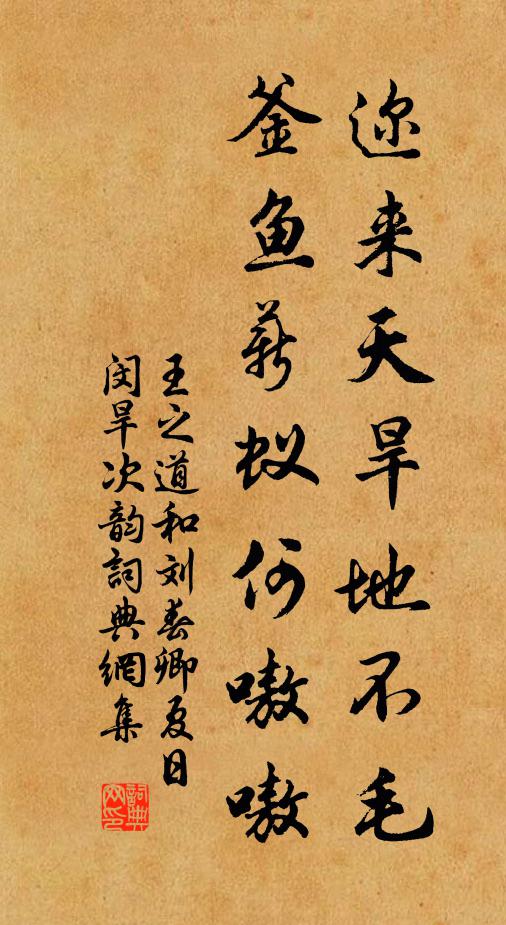 迩来天旱地不毛
釜鱼薪蚁何嗷嗷
王之道和刘春卿夏日
闵旱次韵詞典網集
詞典
网印